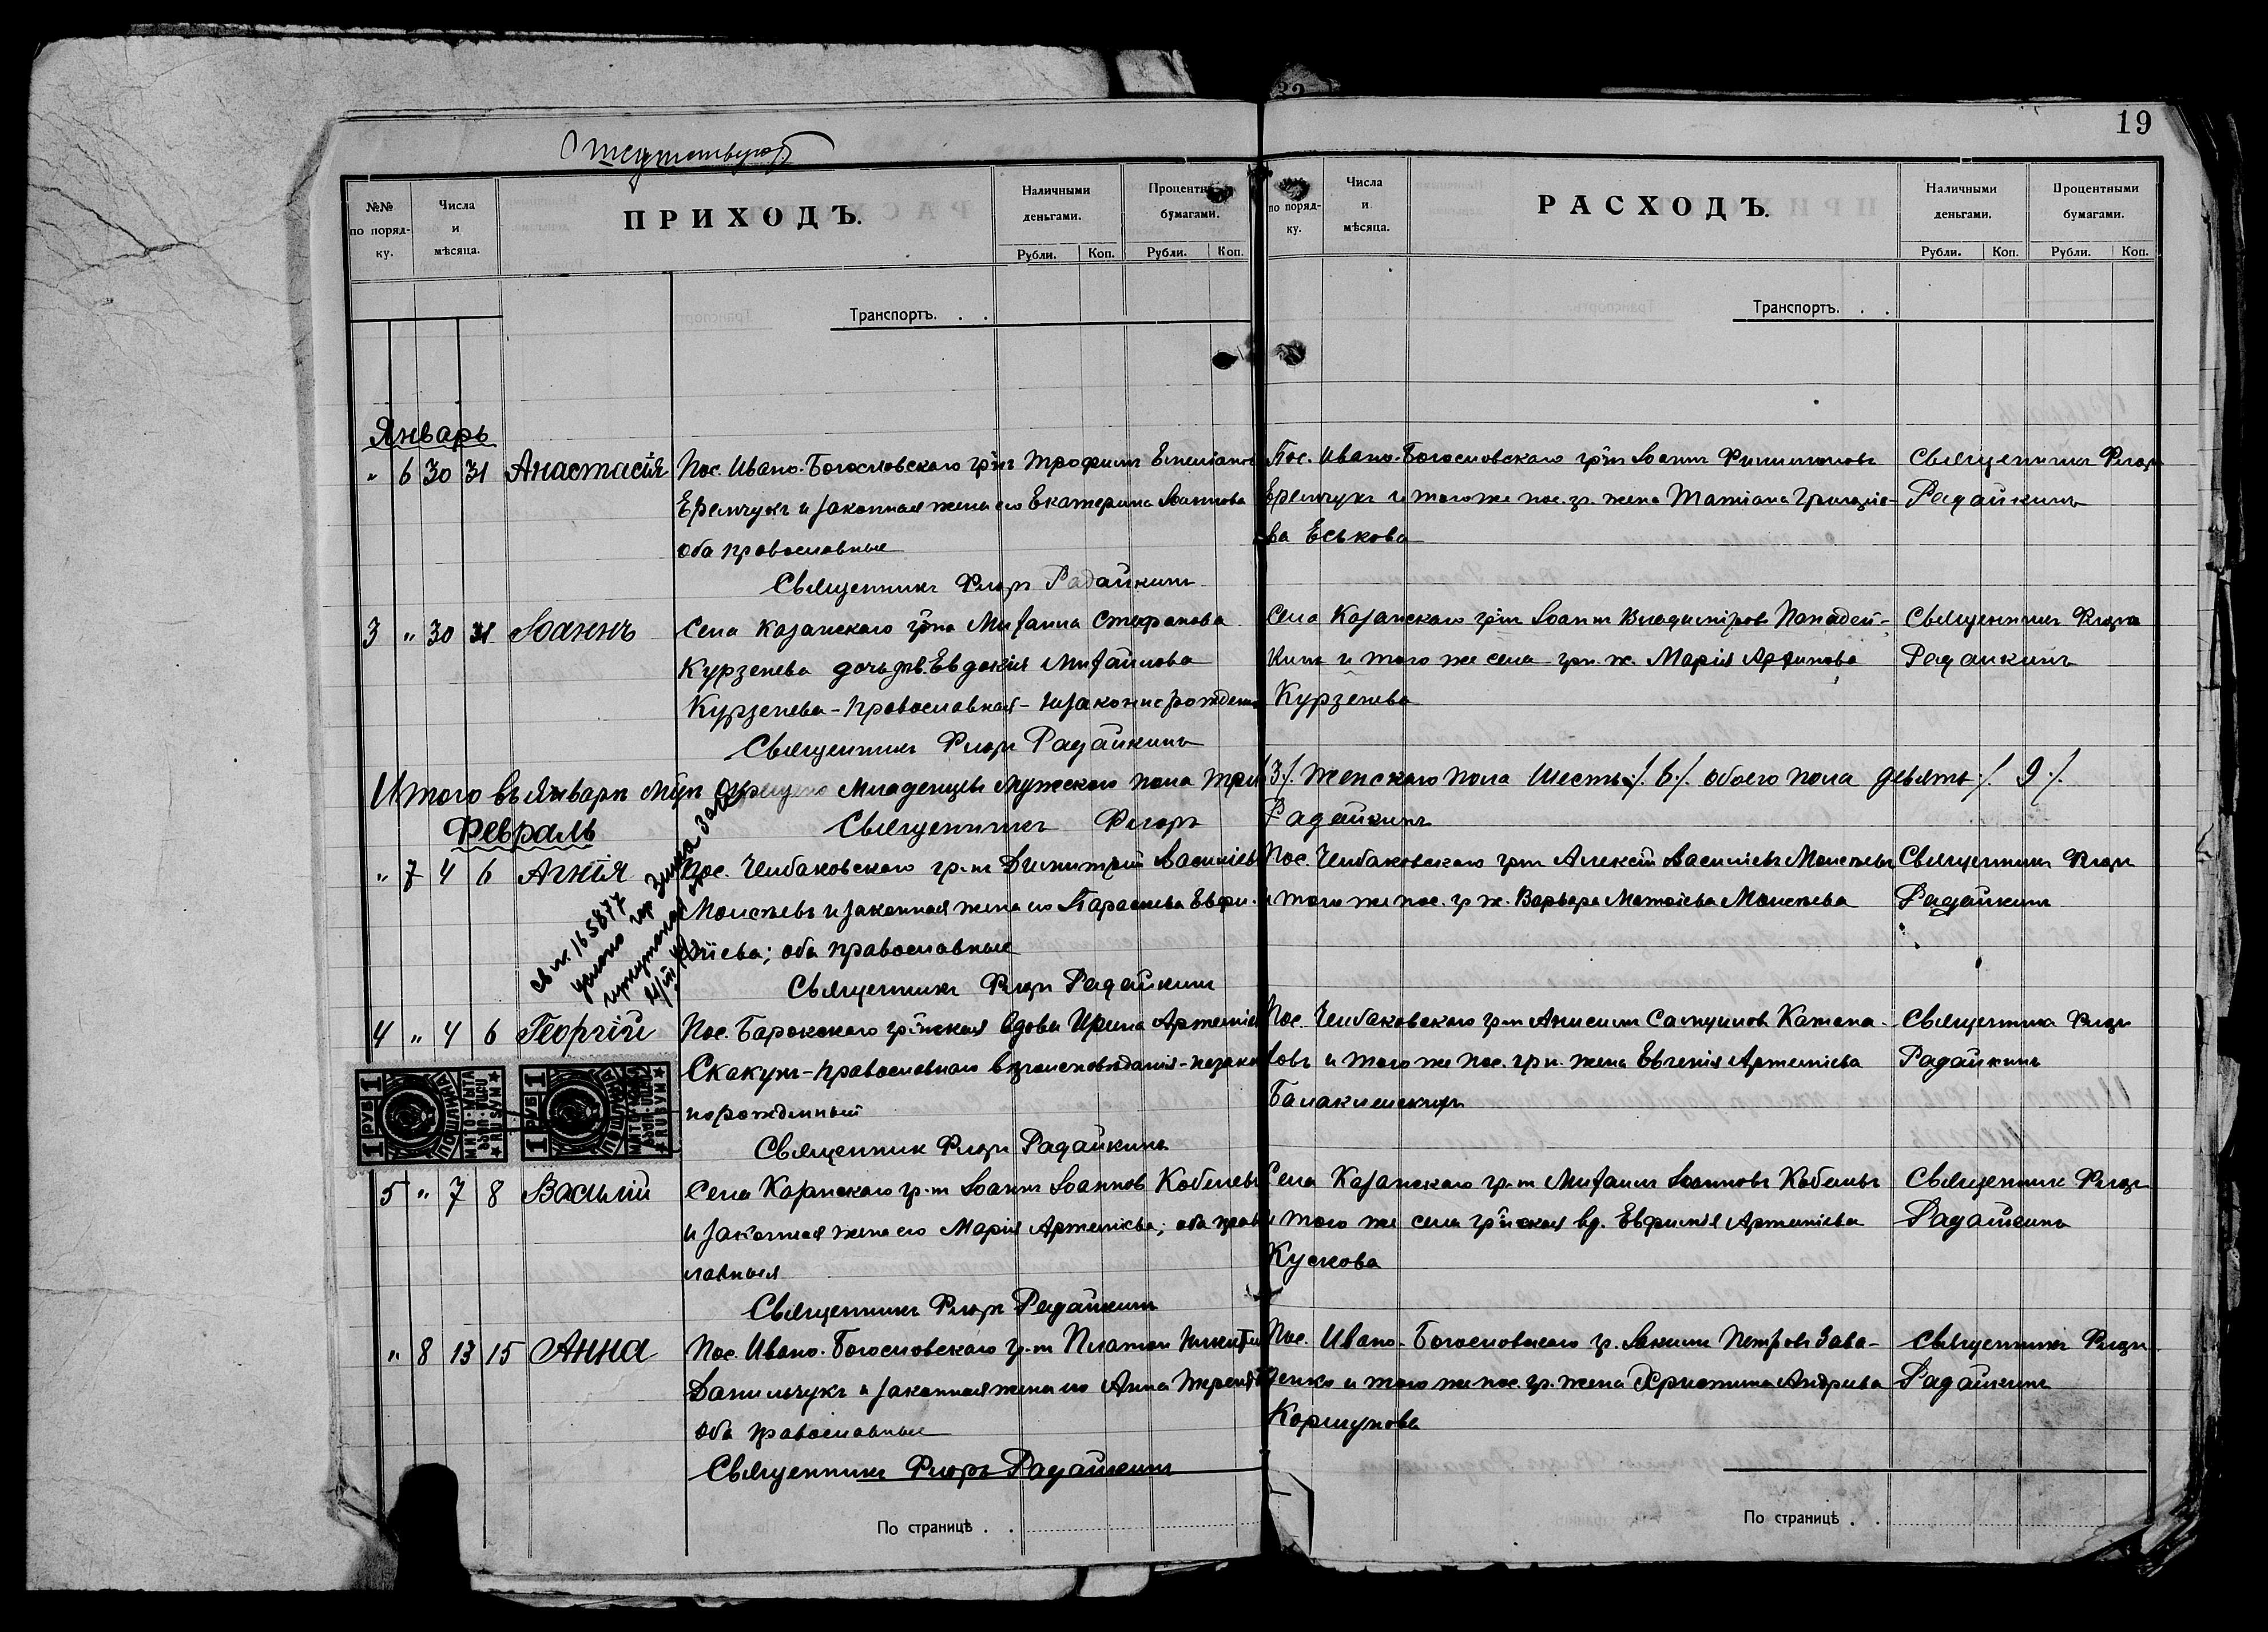 19
№№ по поряд-ку.
Числа и мѣсяца.
ПРИХОДЪ.
Наличными деньгами.
Рубли. Коп.
бумагами.
Рубли. Коп.
по поряд-ку.
Числа и мѣсяца.
РАСХОДЪ.
Наличными деньгами.
Рубли. Коп.
Процентными бумагами.
Рубли. Коп.
Транспортъ. . .
Транспортъ. . .
Январь
" 6 30 31 Анастасія Пос. Ивано-Богословскаго гр-нъ Трофимъ Емеліановъ
Еремчукъ и законная жена его Екатерина Іоаннова
оба православные
Священникъ Флоръ Радайкинъ
Пос. Ивано-Богословскаго гр-нъ Іоаннъ Филимоновъ
Еремчукъ и того же пос. гр. жена Татіана Григоріе-
ва Еськова
Священникъ Флоръ
Радайкинъ
3 " 30 31 Іоаннъ Села Казанскаго гр-на Михаила Стефанова
Курзенева дочь дѣв. Евдокія Михайлова
Курзенева - православная - незаконнорожденн
Священникъ Флоръ Радайкинъ
Села Казанскаго гр-нъ Іоаннъ Владиміровъ Попадей-
кинъ и того же села гр-н. ж. Марія
Курзенева
Священникъ Флоръ
Радайкинъ
Итого въ Январѣ м-цѣ окрещено младенцевъ мужескаго пола три /3/. женскаго пола шесть ./. 6./. обоего пола девять ./. 9./.
Священникъ Флоръ Радайкинъ
Февраль
" 7 4 6 Агнія Пос. Челбаковскаго гр-нъ Димитрій Василіевъ
Моисѣевъ и законная жена его Параскева Евфи-
міева; оба православные
Священникъ Флоръ Радайкинъ
Пос. Челбаковскаго гр-нъ Алексій Василіевъ Моисѣевъ
и того же пос. гр. ж. Варвара Матвіева Моисѣева
Священникъ Флоръ
Радайкинъ
св № 165877
4 " 4 6 Георгій Пос. Барокскаго гр-нская вдова Ирина Артеміева
Скакунъ - православнаго вѣроисповѣданія - незакон
норожденный
Священник Флоръ Радайкинъ
Пос. Челбаковскаго гр-нъ Анисимъ
ловъ и того же пос. гр-н. жена Евгенія Артеміева
Священника Флоръ
Радайкинъ
1 РУБ 1
ПОШЛИНА
1 РУБ 1
ПОШЛИНА
5 " 7 8 Василій Села Казанскаго гр-нъ Іоаннъ Іоаннов Кобелевъ
и законная жена его Марія Артеміева; оба право
славныя
Священникъ Флоръ Радайкинъ
Села Казанскаго гр-нъ Михаилъ Іоанновъ Кобелевъ
и того же села гр-нская вд. Евфимія Артеміева
Кускова
Священник Флоръ
Радайкинъ
" 8 13 15 Анна Пос. Ивано-Богословскаго гр-нъ Платон Никитинъ
Данильчукъ и законная жена его Анна
оба православные
Священникъ Флоръ Радайкинъ
Пос. Ивано-Богословскаго гр. Іакимъ Петровъ Зава-
денко и того же пос. гр. жена Христина Андреева
Коршунова
Священникъ Флоръ
Радайкинъ
По страницѣ . .
По страницѣ . .